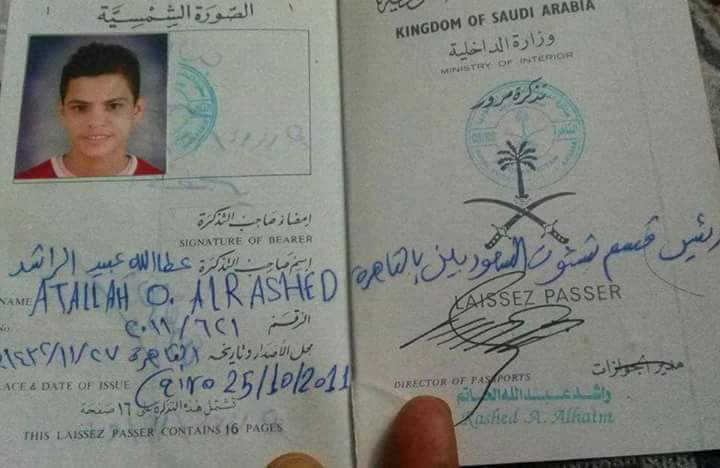 الصورة الشمسية
امضاء صاحب التذكرة
SIGNATURE OF BEARER
اسم صاحب التذكرة عطاالله عبيد الراشد
NAME ATALLAH O. ALRASHED
No. ٢٠١١/٦٢١ الرقم
محل الاصدار وتاريخه القاهرة ١٤٣٢/١١/٢٧
PLACE & DATE OF ISSUE Cairo 25/10/2011
تشتمل هذه التذكرة على ١٦ صفحة
THIS LAISSEZ PASSER CONTAINS 16 PAGES
KINGDOM OF SAUDI ARABIA
وزارة الداخلية
MINISTRY OF INTERIOR
تذكرة مرور
رئيس قسم شئون السعوديين بالقاهرة
LAISSEZ PASSER
مدير الجوازات
DIRECTOR OF PASSPORTS
راشد عبدالله الحاتم
Rashed A. Alhatm